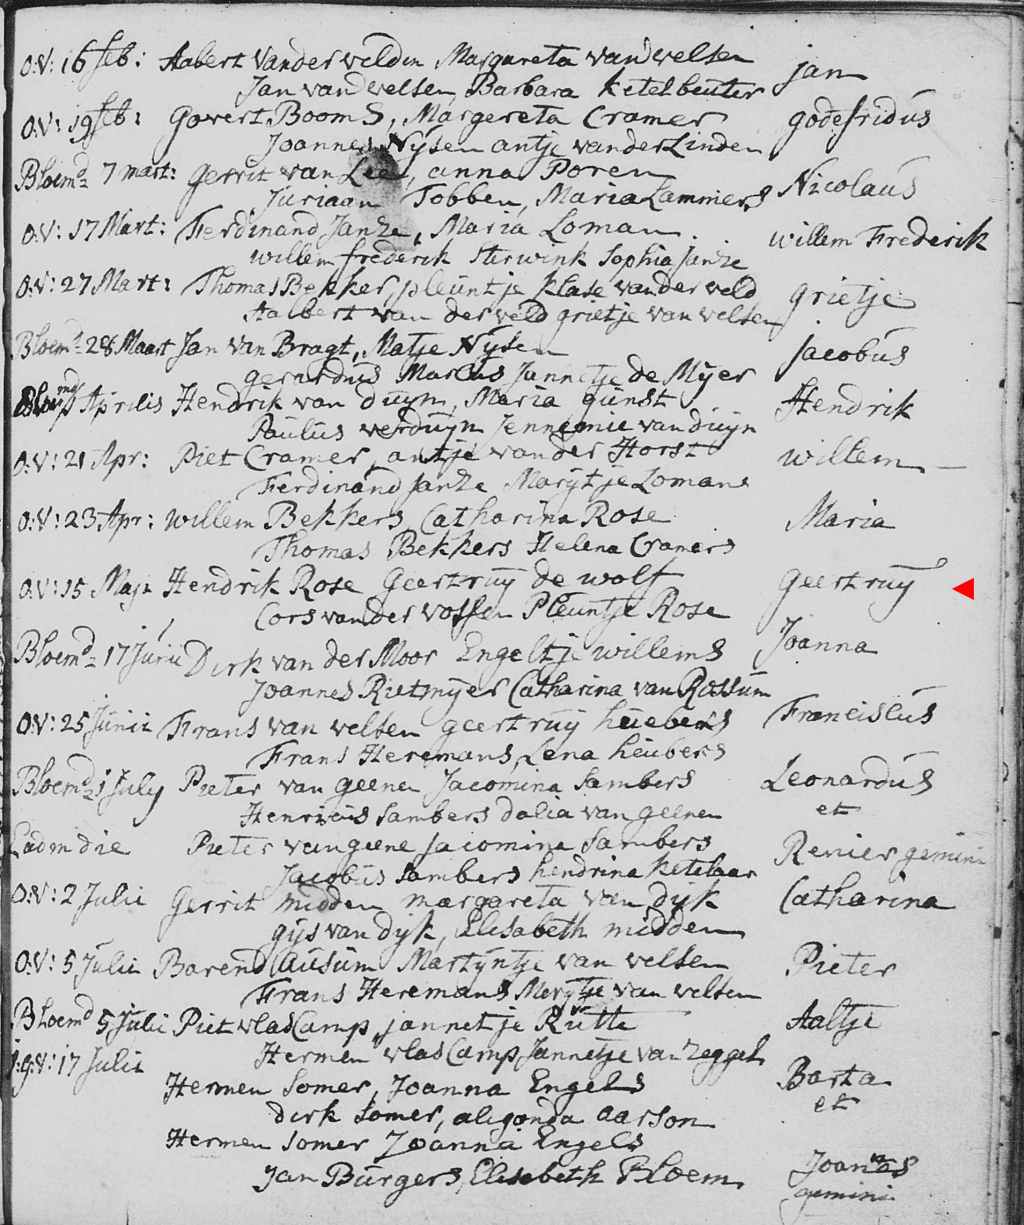 O:V: 16 feb: Aabert vander velden Margareta vandvelsen jan
Jan vandvelsen, Barbara Ketelbeuter
O:V: 19 feb: Govert Booms, Margereta Cramer godefridús
Joannes Nijsen antje vander Linden
Bloemd 7 mart: gerrit van Lee, anna Poren Nicolaús
Juriaan Tobben, Maria Lammers
O:V: 17 Mart: Ferdinand Janze, Maria Loman willem Frederik
willem frederik Sterwink Sophia Janze
O:V: 27 Mart: Thomas Bekker, pleúntje Klase vander veld grietje
Aalbert van der veld grietje van velsen
Bloemd 28 Maart Jan van Bragt, Matje Nijsen jacobús
gerardús Marcús Jannetje de Mijer
Aprilis Hendrik van dúyn, Maria gúnst Hendrik
Paulús verdúijn Jennemie van dúijn
O:V: 21 Apr: Piet Cramer, antje van der Horst willem
Ferdinand Janze Marijtje Lomans
O:V: 23 Apr: willem Bekkers, Catharina Rose Maria
Thomas Bekkers Helena Cramers
O:V: 15 Maji Hendrik Rose Geertruij de wolf geertruij
Cors vander vossen Pleúntje Rose
Bloemd 17 Júnii Dirk van der Moor Engeltje willems Joanna
Joannes Rietmijer Catharina van Rossúm
O:V: 25 Júnii Frans van velsen geertruij heúbers Franciscús
Frans Heremans, Lena heúbers
Bloemd 1 July Pieter van geenen Jacomina Sambers Leonardús
Henricús Sambers dalia van geenen et
Eadm die Pieter vangeene Jacomina Sambers Renier gemini
Jacobús Sambers hendrina Ketelaar
O:V: 2 Julii Gerrit midden margareta van dijk Catharina
gijs van dijk, Elisabeth midden
O:V: 5 Júlii Barend Aúsúm Martijntje van velsen Pieter
Frans Heremans Merijtje van velsen
Bloemd 5 Júlii Piet vlasCamp, jannetje Rútte Aaltje
Hermen vlasCamp, Jannetje van Zeggel
17 Julii
Hermen Somer, Joanna Engels Barta
dirk Somer, aligonda aarson et
Hermen Somer Joanna Engels
Jan Búrgers, Elisebeth Bloem Joannas
gemini